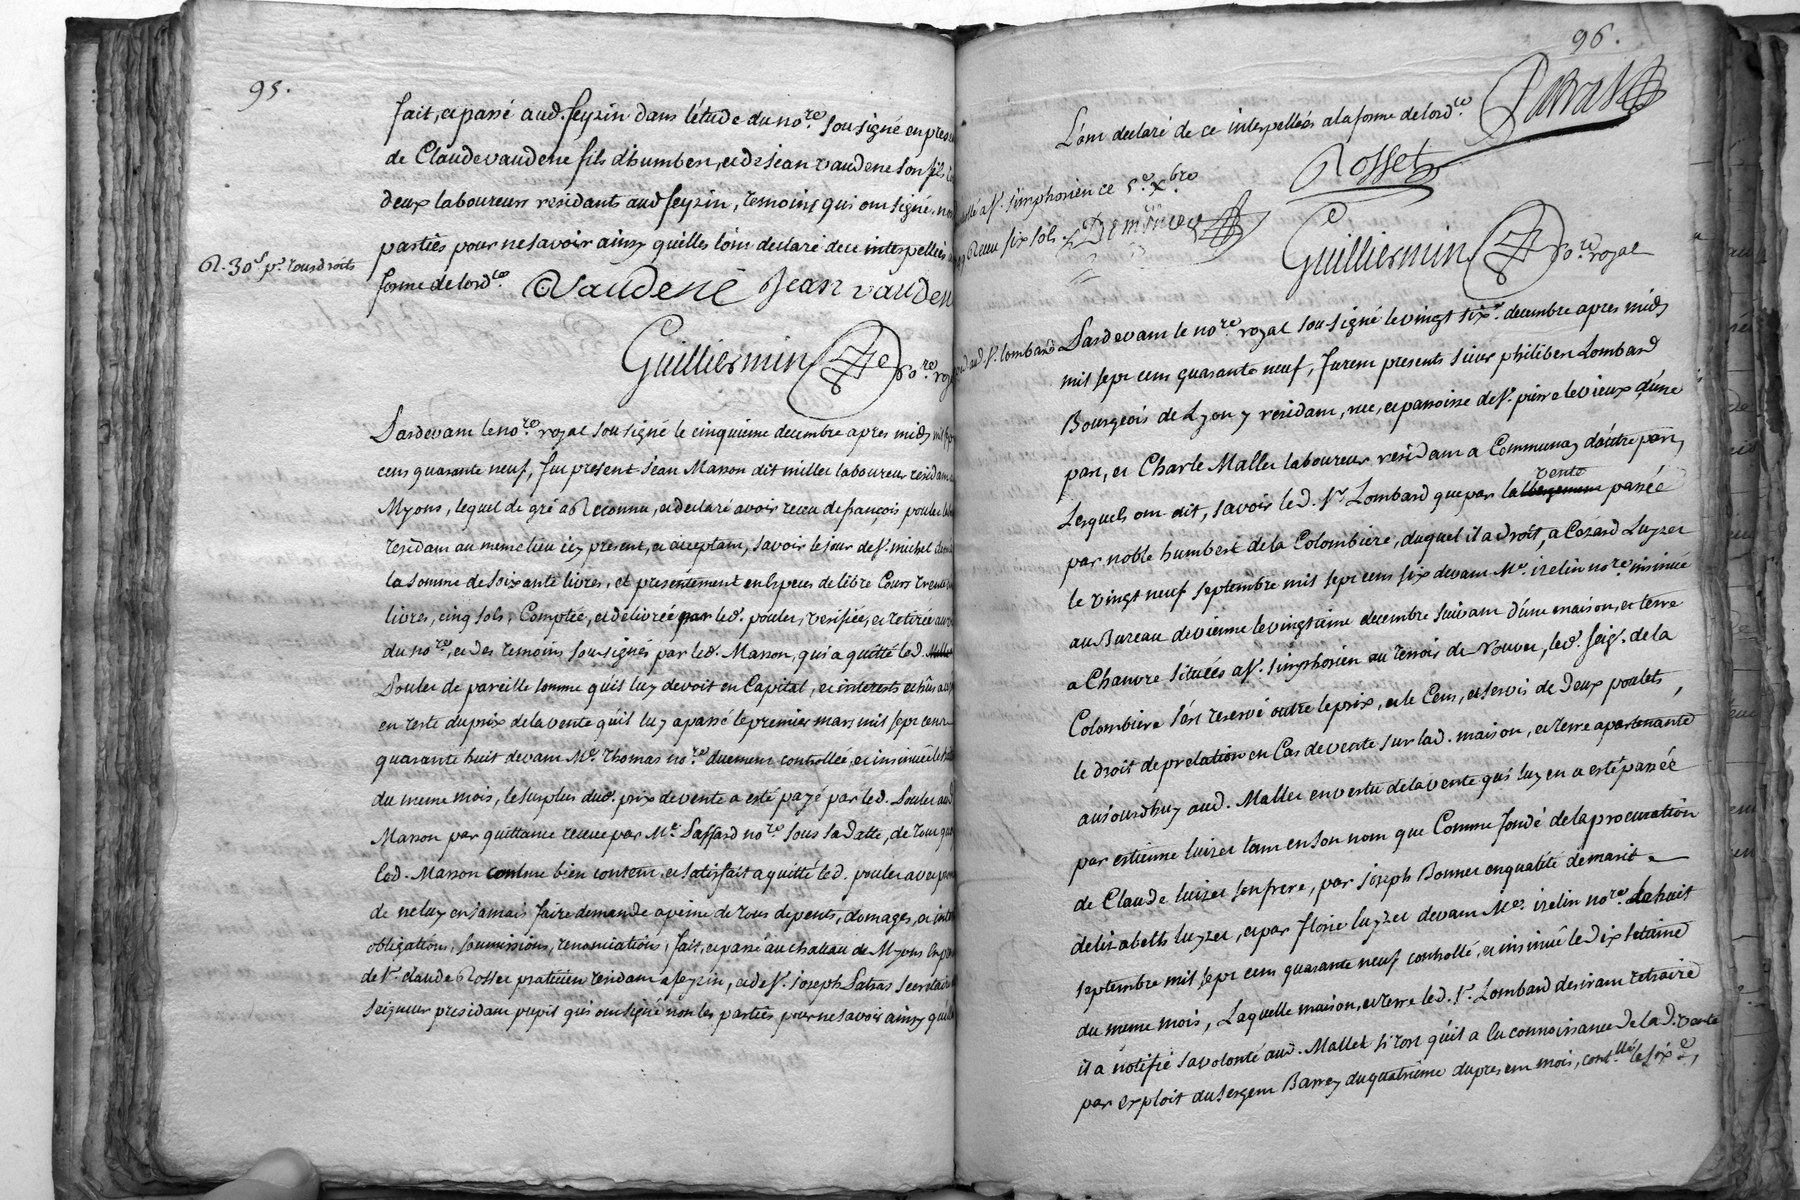 95.
fait, et passé aud. feyzin dans l'étude du no.re sousigné en presen
de Claude vaudene fils d'humbert, et de jean vaudene son fils
deux laboureurs residants aud feyzin, temoins qui ont signé, non
parties pour ne savoir ainsy quelles l'ont declaré de ce interpellées
R. 30 s. pr. tous droits
forme de lord.ce Vaudené Jean vauden
Guilliermin no.re roy
Pardevant le no.re royal sousigné le cinquieme decembre apres midy mil sept
cens quarante neuf, fut present jean Masson dit miller laboureur residant
Myons, lequel de gré a Reconnu, et declaré avoir receu de françois poulet
residant au meme lieu icy present, et acceptant, savoir le jour de St. michel
la somme de soixante livres, et presentement en Especes de libre Cours trente
livres, cinq sols, Comptée, et delivrée par led. poulet, verifiée, et retirée au
du no.re, et des temoins sousignés par led. Masson, qui a quitté led.
Poulet de pareille somme qu'il luy devoit en Capital, et interests
en reste du prix de la vente qu'il luy a passé le premier mars mil sept cens
quarante huit devant Me. Thomas no.re duement controllée, et insinuée le
du meme mois, le surplus dud. prix de vente a esté payé par led. Poulet aud
Masson par quittance receue par Me. Passard no.re sous sa datte, de tout quoy
led. Masson comme bien content, et satisfait a quitté led. poulet avec
de ne luy en jamais faire demande a peine de tous depents, domages, et
obligations, soumissions, renonciations, fait, et passé au chateau de Myons
de Sr. claude Rosset praticien residant a feyzin, et de Sr. joseph Parras
seigneur president pupil qui ont signé non les parties pour ne savoir ainsy
96.
l'ont declaré de ce interpellées a la forme de lord.ce Parras
Rosset
a St. simphorien ce 5.e xbre
Receu six sols. Demincieux
Guilliermin No.re royal
aud Sr. lombard
Pardevant le no.re royal sousigné le vingt six.e decembre apres midy
mil sept cens quarante neuf, furent presents sieur philibert Lombard
Bourgeois de Lyon y residant, rue, et paroisse de St. pierre le vieux d'une
part, et Charle Mallet laboureur residant a Communay d'autre part,
vente
Lesquels ont dit, savoir led. Sr. Lombard que par la passée
par noble humbert de la Colombiere, duquel il a droit, a Cozard Luyzet
le vingt neuf septembre mil sept cens six devant Me. izelin no.re insinué
au Bureau de vienne le vingtieme decembre suivant d'une maison, et terre
a Chanvre situées a St. simphorien au terroir de Rouver, led. seig. de la
Colombiere s'est reservé outre le prix, et le Cens, et servis de deux poulets,
le droit de prelation en Cas de vente sur lad. maison, et terre apartenante
aujourdhuy aud. Mallet en vertu de la vente qui luy en a esté passée
par estienne luizet tant en son nom que Comme fondé de la procuration
de Claude luizet son frere, par joseph Bonnet en qualité de marit
delizabeth luyzet, et par florie luyzet devant Me. izelin no.re le huit
septembre mil sept cens quarante neuf controllé, et insinué le dix septieme
du meme mois, Laquelle maison, et terre led. Sr. Lombard desirant retraire
il a notifié sa volonté aud. Mallet si tost qu'il a eu connoissance de lad. vente
par exploit du sergent Barrey du quatrieme du present mois, cont.llé le six.e